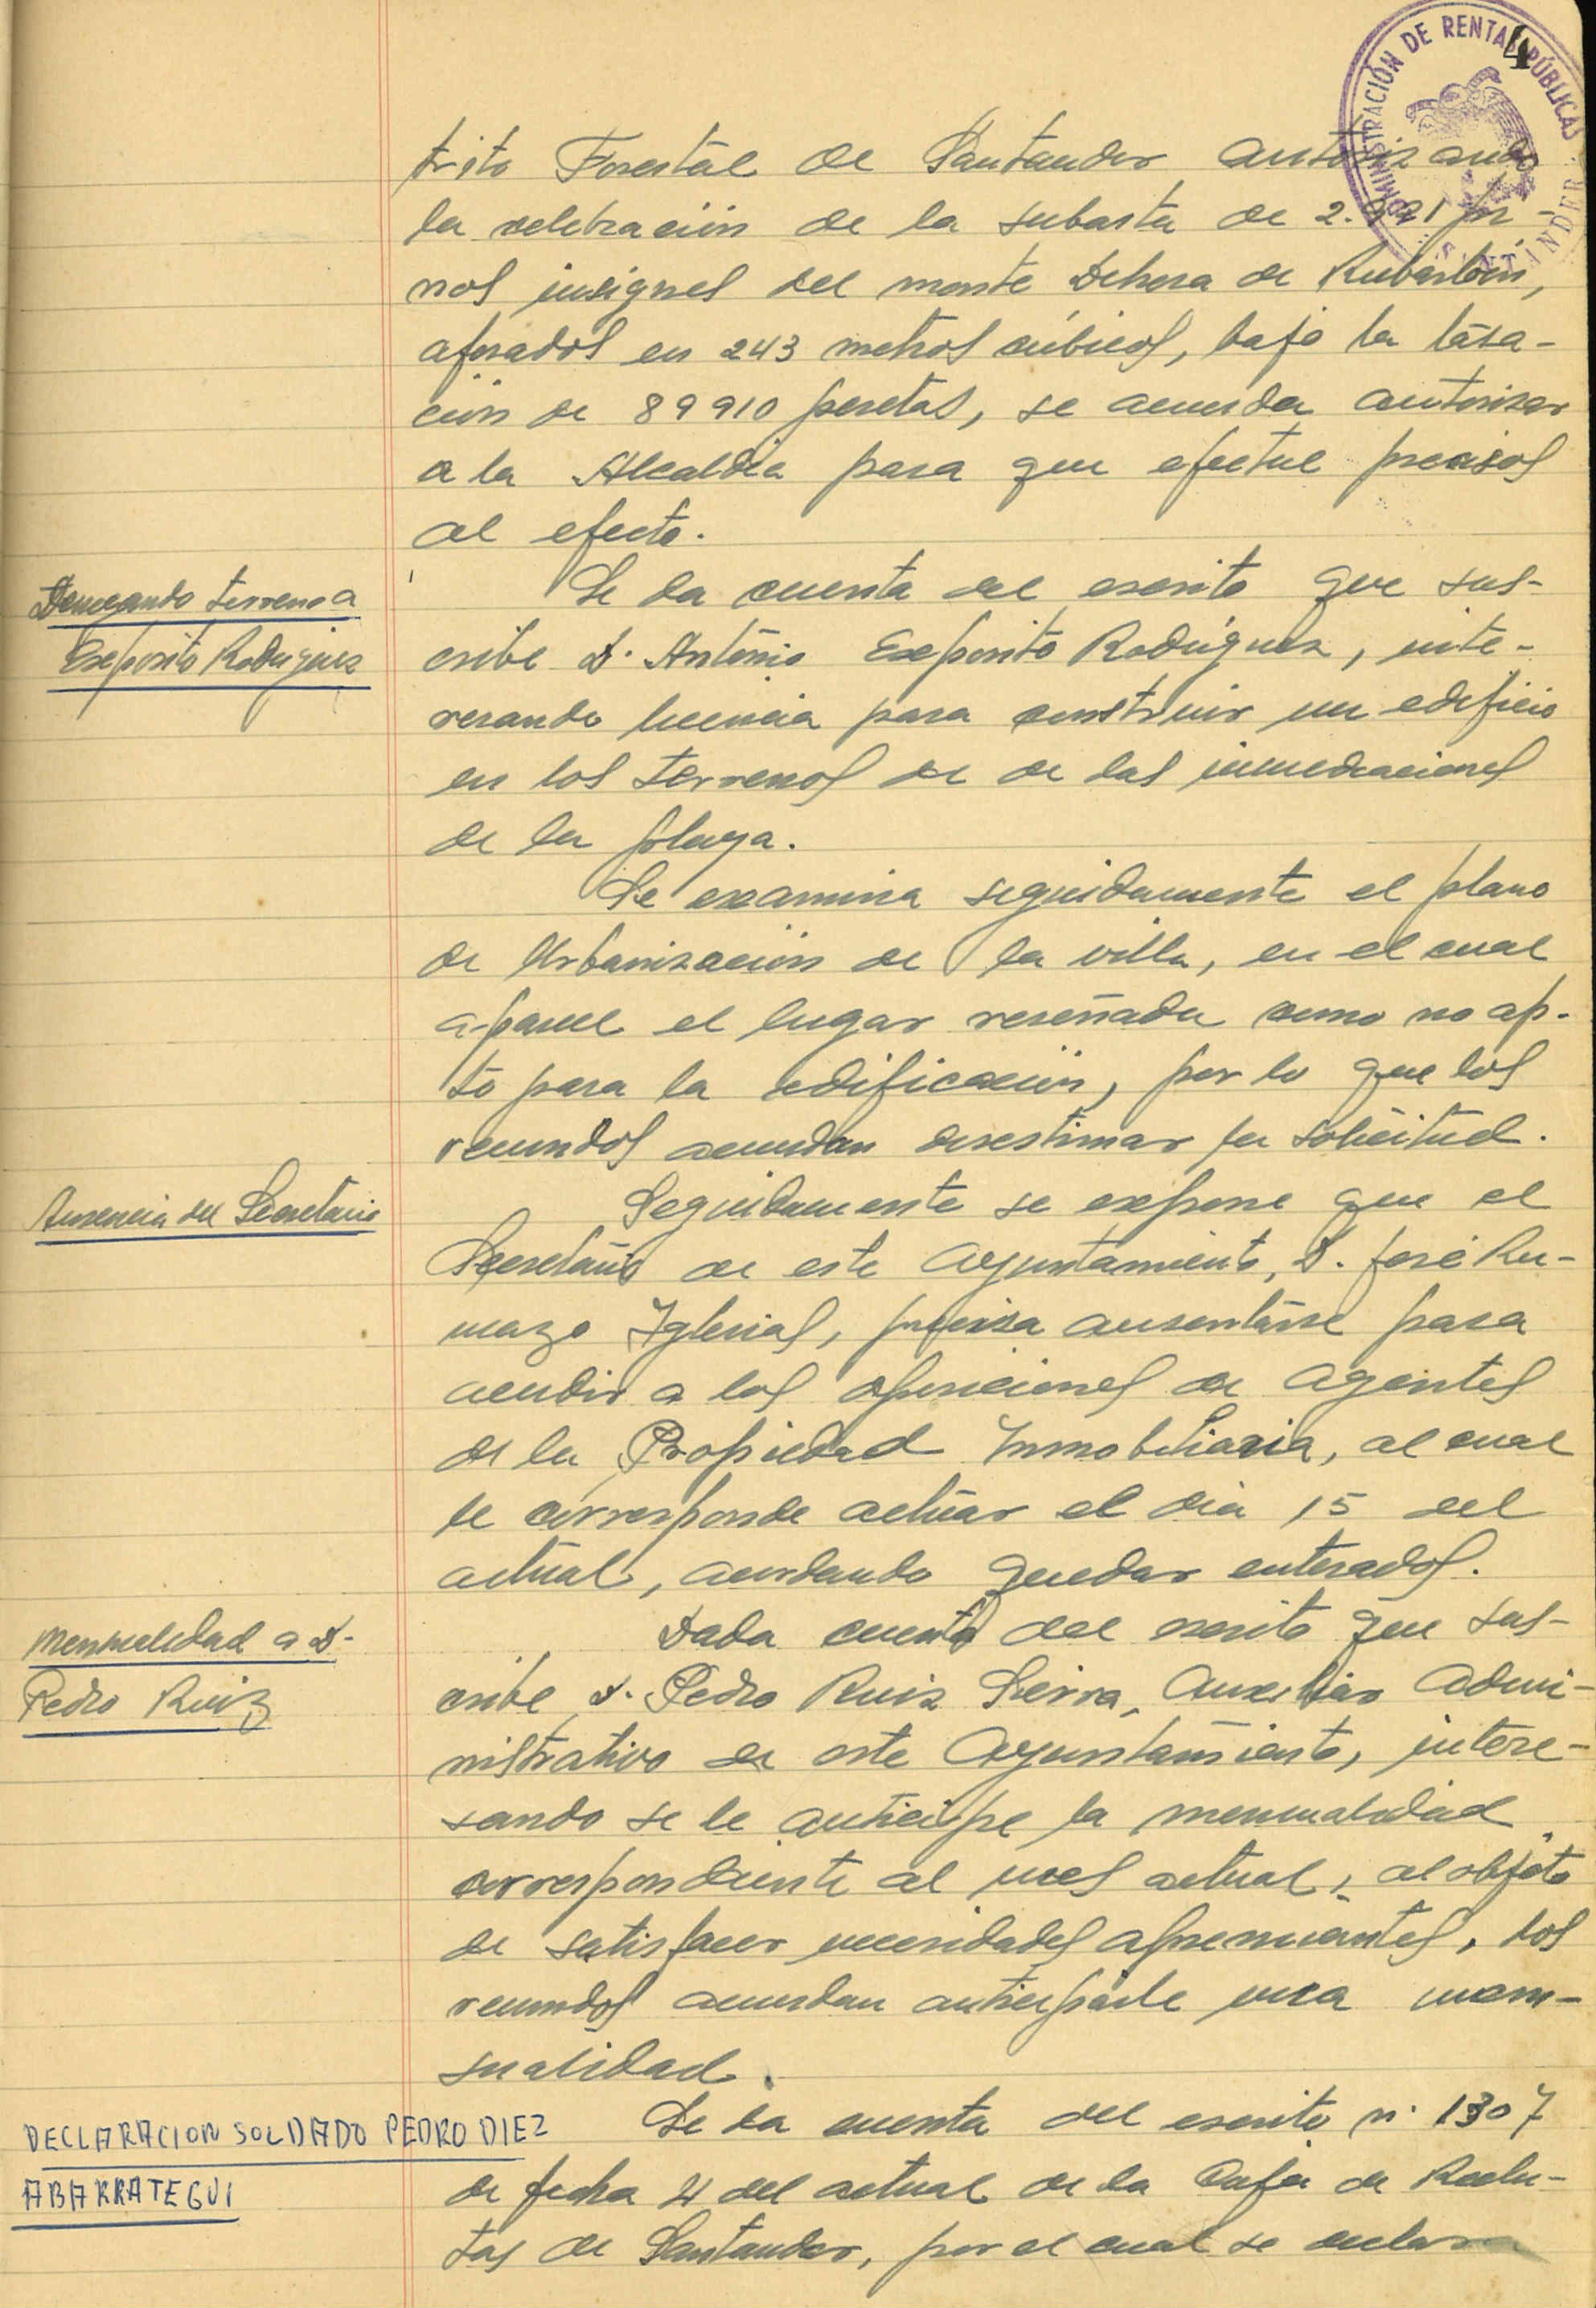 4
ADMINISTRACIÓN DE RENTAS PÚBLICAS
SANTANDER
trito Forestal de Santander autorizando
la celebración de la subasta de 2.921 pi-
nos insignes del monte Dehesa de
aforados en 243 metros cúbicos, bajo la tasa-
ción de 89910 pesetas, se acuerda autorizar
a la Alcaldía para que efectue precisos
al efecto.
Denegando terreno a
Exposito Rodriguez
Se da cuenta del escrito que sus-
cribe D. António Exposito Rodríguez, inte-
resando licencia para construir un edificio
en los terrenos de de las inmediaciones
de la playa.
Se examina seguidamente el plano
de Urbanización de la villa, en el cual
aparece el lugar reseñado como no ap-
to para la edificación, por lo que los
reunidos acuerdan desestimar su solicitud.
Ausencia del Secretario
Seguidamente se expone que el
Secretario de este Ayuntamiento, D. José Ru-
mazo Iglesias, precisa ausentarse para
acudir a las oposiciones de Agentes
de la Propiedad Inmobiliaria, al cual
le corresponde actúar el dia 15 del
actual, acordando quedar enterados.
Mensualidad a D.
Pedro Ruiz
Dada cuenta del escrito que sus-
cribe D. Pedro Ruiz Sierra, Auxiliar Admi-
nistrativo de este Ayuntamiento, intere-
sando se le anticipe la mensualidad
correspondiente al mes actual, al objeto
de satisfacer necesidades apremiantes, los
reunidos acuerdan anticiparle una men-
sualidad.
DECLARACION SOLDADO PEDRO DIEZ
ABARRATEGUI
Se da cuenta del escrito nº 1307
de fecha 4 del actual de la Caja de Reclu-
tas de Santander, por el cual se declara